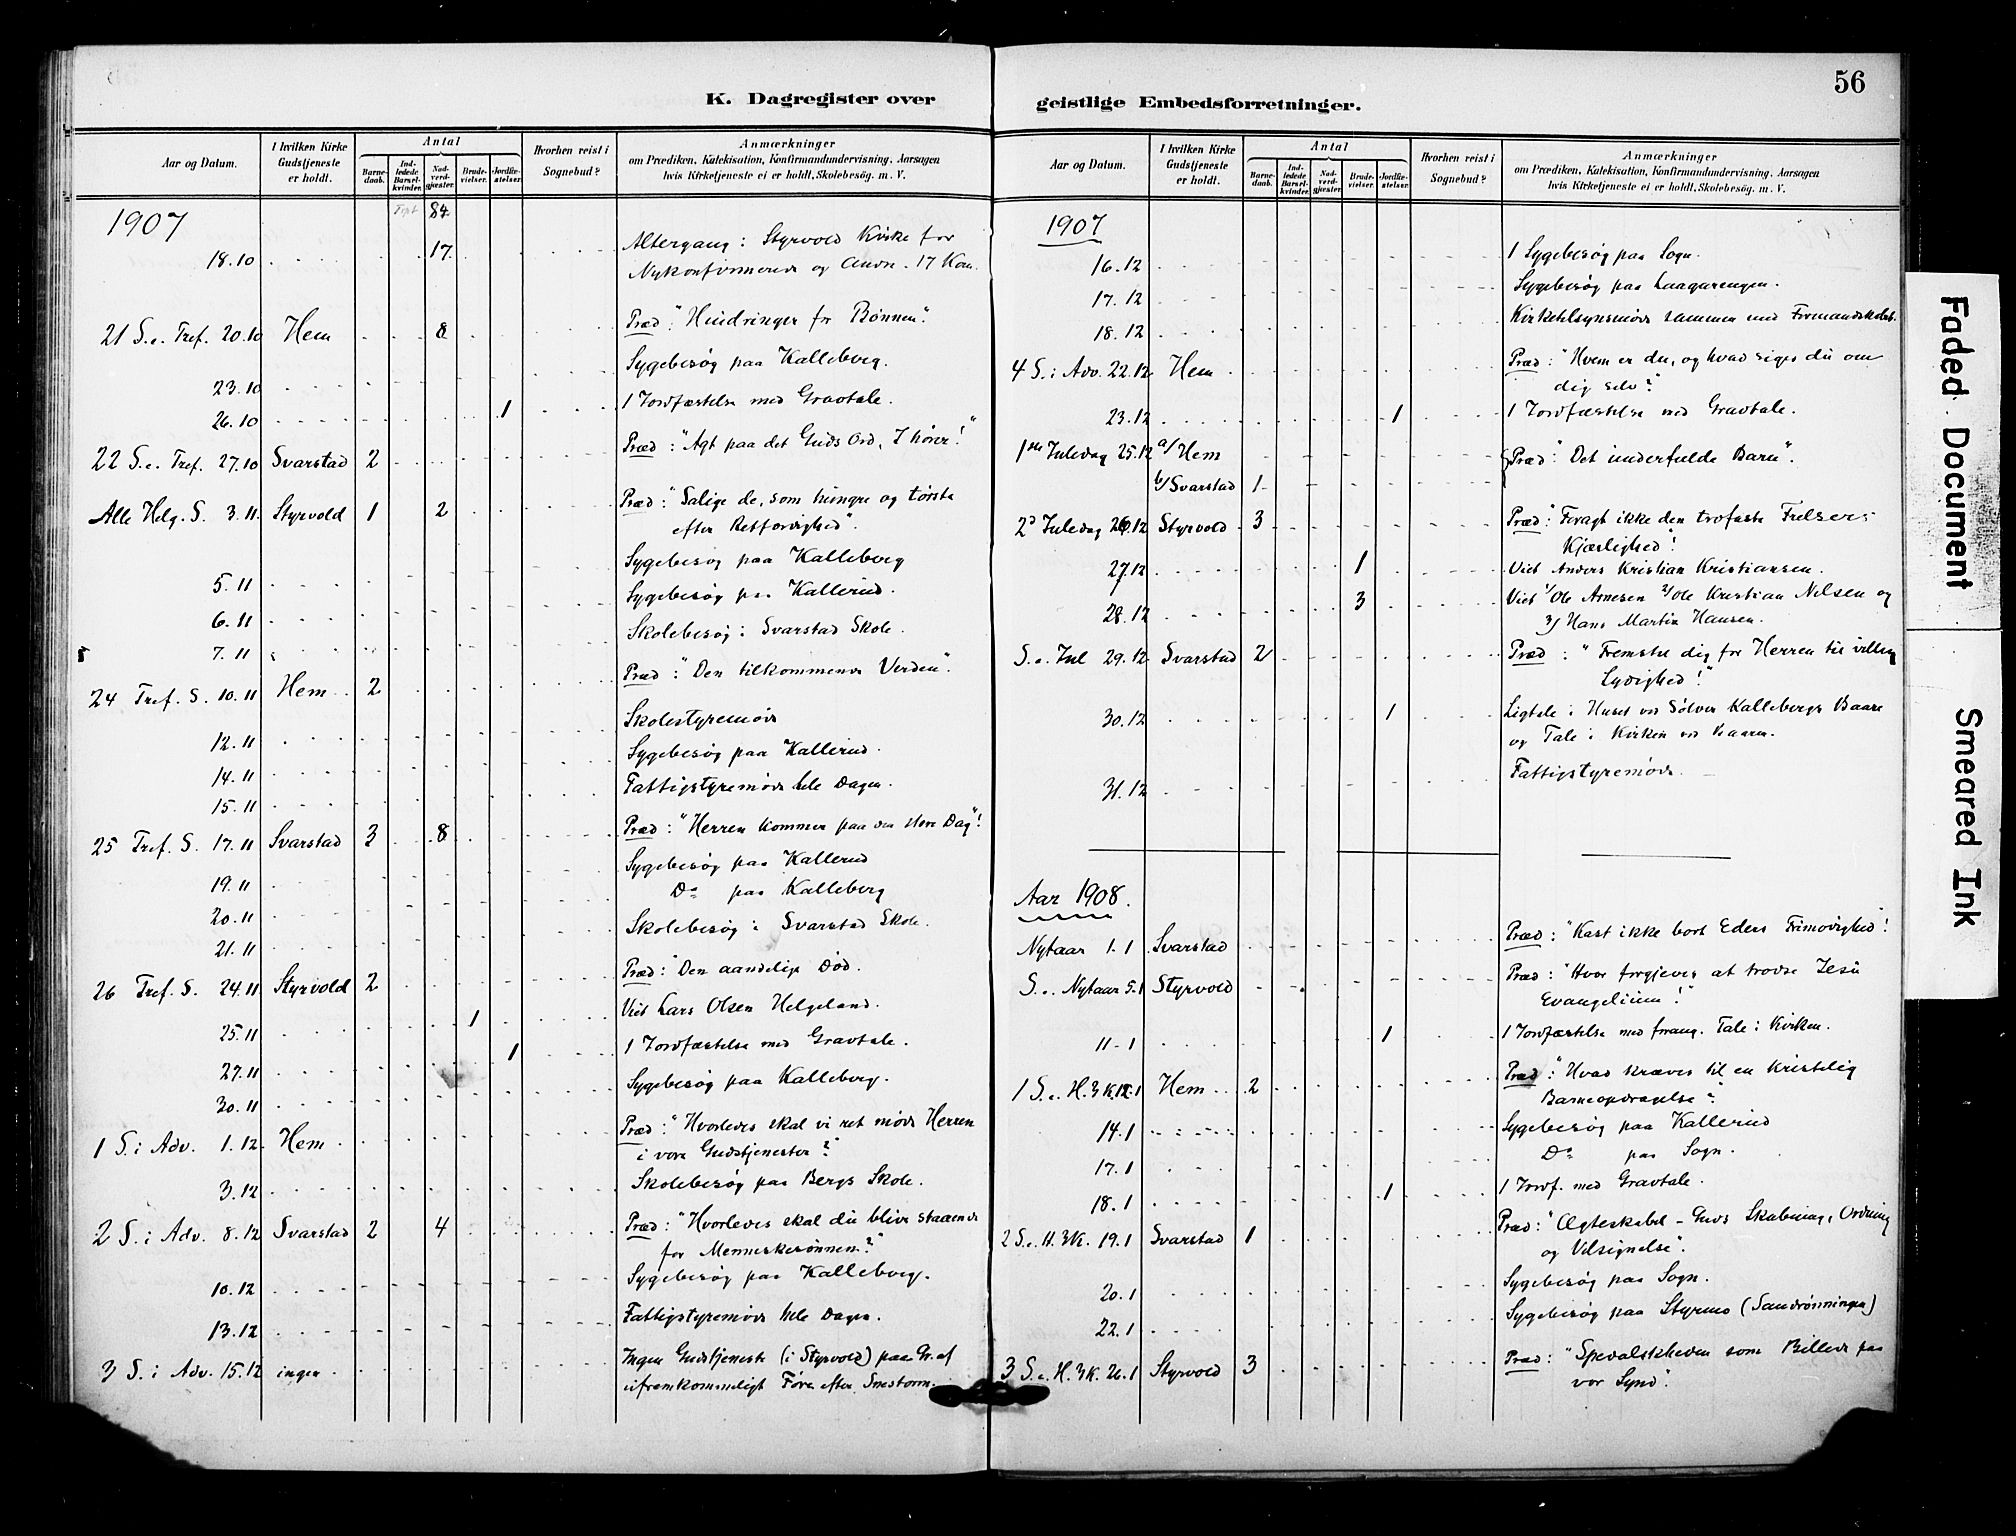 56
K. Dagregister over geistlige Embedsforretninger.
Aar og Datum.
I hvilken Kirke Gudstjeneste er holdt.
Antal
Barnedaab.
Indledede Barselkvinder.
Nadverdgjæster.
Brudevielser.
Jordfæstelser.
Hvorhen reist i Sognebud?
Anmærkninger
om Prædiken, Katekisation, Konfirmandundervisning, Aarsagen
hvis Kirketjeneste ei er holdt, Skolebesøg. m. V.
1907 84
18.10 17 Altergang i Styrvold Kirke for
Nykonfirmerede og Andre. 17 Kom.
21 S. e. Tref. 20.10 Hem 8 Præd: "Hindringer for Bønnen".
23.10 Sygebesøg paa Kalleberg.
26.10 1 1 Jordfæstelse med Gravtale.
22 S. e. Tref. 27.10 Svarstad 2 Præd: "Agt paa det Guds Ord, I hører!"
Alle Helg. S. 3.11 Styrvold 1 2 Præd: "Salige de, som hungre og tørste
efter Retfærdighed".
5.11 Sygebesøg paa Kalleberg
6.11 Sygebesøg paa Kallerud.
7.11 Skolebesøg i Svarstad Skole.
24 Tref. S. 10.11 Hem 2 Præd: "Den tilkommende Verden".
12.11 Skolestyremøde
14.11 Sygebesøg paa Kallerud.
15.11 Fattigstyremøde hele Dagen.
25 Tref. S. 17.11 Svarstad 3 8 Præd: "Herren kommer paa den store Dag"!
19.11 Sygebesøg paa Kallerud
20.11 Do paa Kalleberg
21.11 Skolebesøg i Svarstad Skole.
26 Tref. S. 24.11 Styrvold 2 Præd: "Den aandelige Død.
25.11 1 Viet Lars Olsen Helgeland.
27.11 1 1 Jordfæstelse med Gravtale.
30.11 Sygebesøg paa Kalleberg.
1 S. i Adv. 1.12 Hem Præd: "Hvorledes skal vi ret møde Herren
i vore Gudstjenester?"
3.12 Skolebesøg paa Bergs Skole.
2 S. i Adv. 8.12 Svarstad 2 4 Præd: "Hvorledes skal du blive staaende
for Menneskesønnen?"
10.12 Sygebesøg paa Kalleberg.
13.12 Fattigstyremøde hele Dagen.
3 S. i Adv. 15.12 ingen Ingen Gudstjeneste (i Styrvold) paa Gr. af
ufremkommeligt Føre efter Snestorm.
Aar og Datum.
I hvilken Kirke Gudstjeneste er holdt.
Antal
Barnedaab.
Indledede Barselkvinder.
Nadverdgjæster.
Brudevielser.
Jordfæstelser.
Hvorhen reist i Sognebud?
Anmærkninger
om Prædiken, Katekisation, Konfirmandundervisning, Aarsagen
hvis Kirketjeneste ei er holdt, Skolebesøg. m. V.
1907
16.12 1 Sygebesøg paa Sogn.
17.12 Sygebesøg paa
18.12 Kirketilsynsmøde sammen med Formandskabet.
4 S. i Adv. 22.12 Hem Præd: "Hvem er du, og hvad siger du om
dig selv?"
23.12 1 1 Jordfæstelse med Gravtale.
1ste Juledag 25.12 a/ Hem Præd: "Det underfulde Barn".
b/ Svarstad 1
2d Juledag 26.12 Styrvold 3 Præd: "Foragt ikke den trofaste Frelsers
Kjærlighed"!
27.12 1 Viet Anders Kristian Kristiansen.
28.12 3 Viet 1/ Ole Arnesen 2/ Ole Kristian Nilsen og
3/ Hans Martin Hansen.
S. e. Jul 29.12 Svarstad 2 Præd: "Fremstil dig for Herren til villig
Lydighed!"
30.12 1 Ligtale i Huset ved Sølver Kallebergs Baare
og Tale i Kirken ved Baaren.
31.12 Fattigstyremøde.
Aar 1908.
Nytaar 1.1 Svarstad Præd: "Kast ikke bort Eders Frimodighed"!
S. e. Nytaar 5.1 Styrvold Præd: "Hvor forgjeves at trodse Jesu
Evangelium!"
11.1 1 1 Jordfæstelse med forang. Tale i Kirken.
1 S. e. H. 3 K. 12.1 Hem 2 Præd: "Hvad kræves til en Kristelig
Barneopdragelse"?
14.1 Sygebesøg paa Kallerud
17.1 Do paa Sogn.
18.1 1 1 Jordf. med Gravtale.
2 S. e. H. 3 K. 19.1 Svarstad 1 Præd: "Ægteskabet - Guds Skabning, Ordning
og Velsignelse".
20.1 Sygebesøg paa Sogn.
22.1 Sygebesøg paa Styrmo (Sandrønningen)
3 S. e. H. 3 K. 26.1 Styrvold 3 Præd: "Spedalskheden som Billede paa
vor Synd".
Faded Document
Smeared Ink